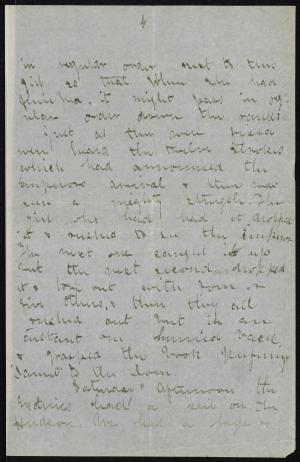 4
in regular order next to this
girl so that when she had
finished, it might pass in reg-
ular order down the ranks.
Just as they were
were heard the twelve strokes
which had announced the
Emperors arrival & then
a mighty struggle. The
girl who had had it dropped
it & rushed to see the Emperor
The next one caught it up
but the next second dropped
it & out with four or
five others, & then they all
rushed out but in an
instant one hurried back,
& grasped the book
to the
Saturday afternoon the
had a sail on the
Hudson. We had a large